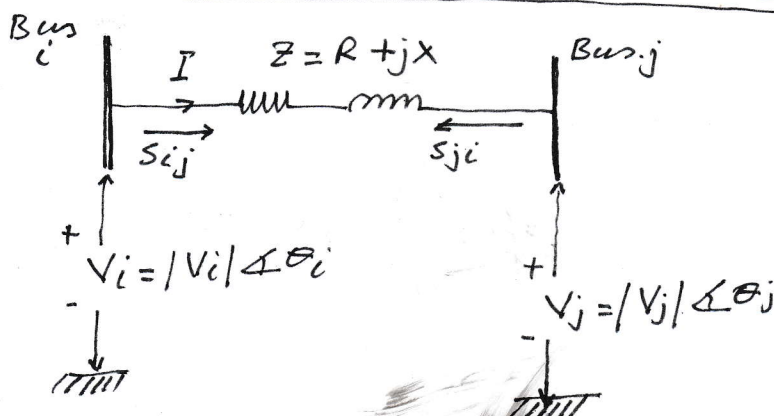 Bus
i
I
Z = R + jX
Bus.j
Sij
Sji
+
Vi = |Vi| ∡θi
-
+
Vj = |Vj| ∡θj
-